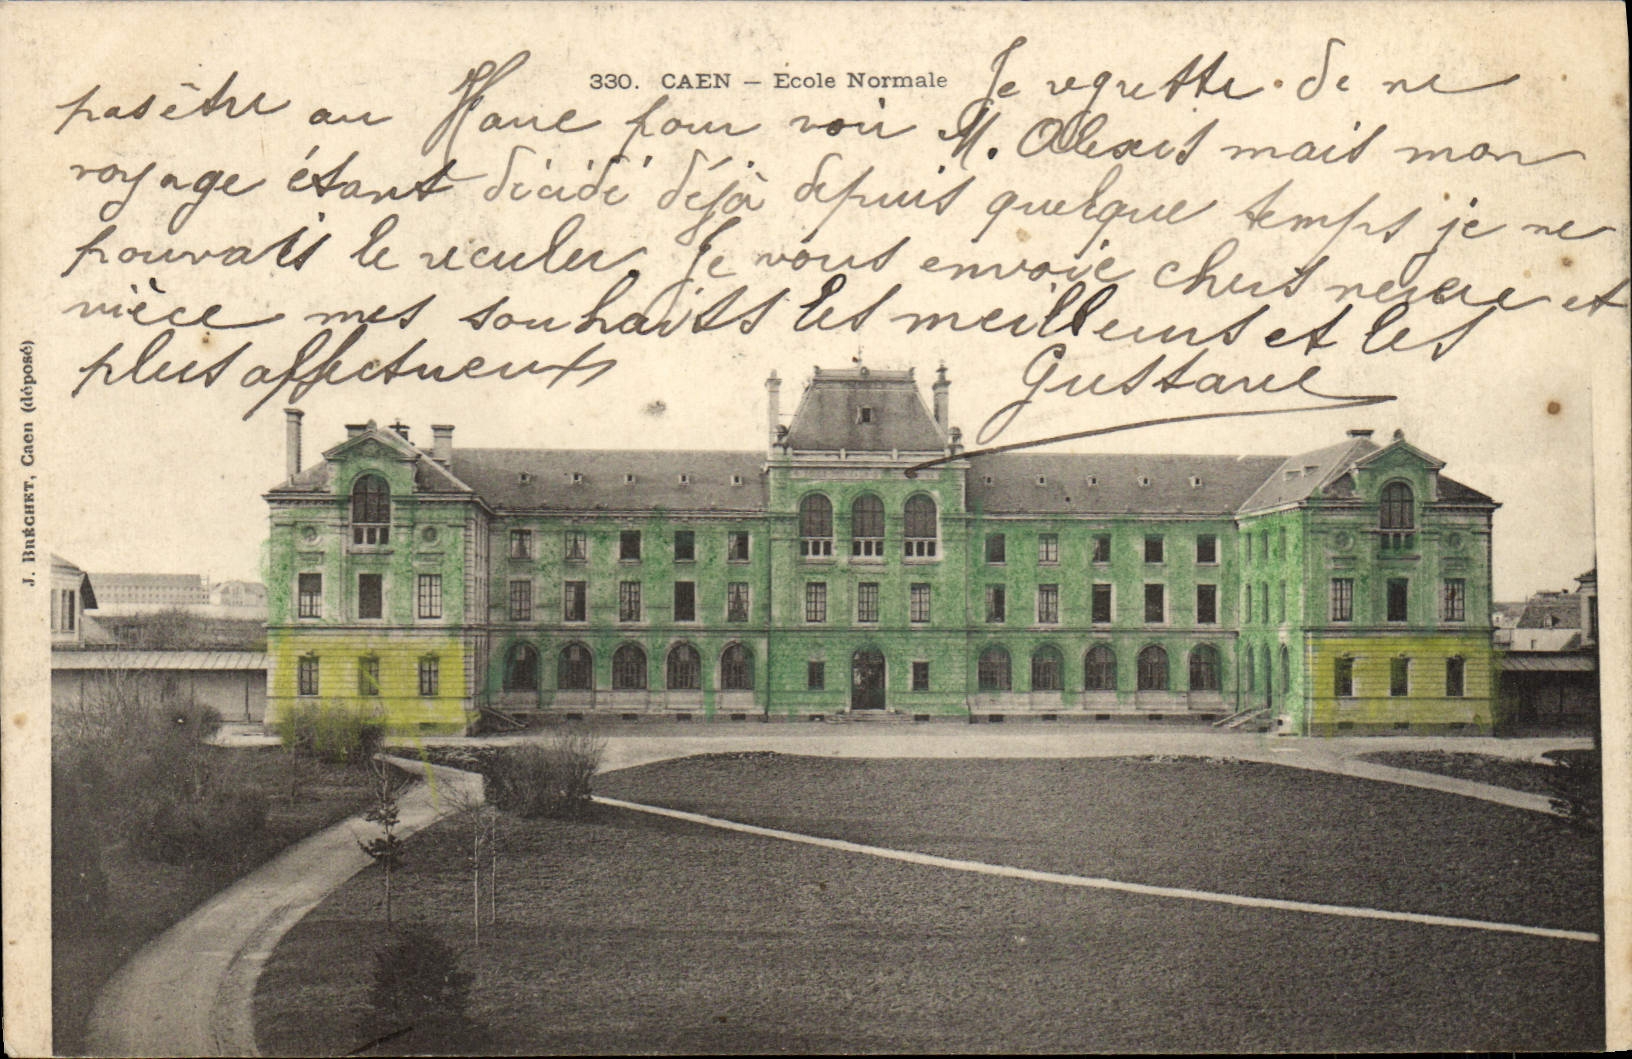 330. CAEN — Ecole Normale
Je regrette de ne
pas être au Havre pour voir M. Alexis mais mon
voyage étant décidé déjà depuis quelque temps je ne
pouvais le reculer. Je vous envoie chers neveu et
nièce mes souhaits les meilleurs et les
plus affectueux
Gustave
J. BRÉCHET, Caen (déposé)